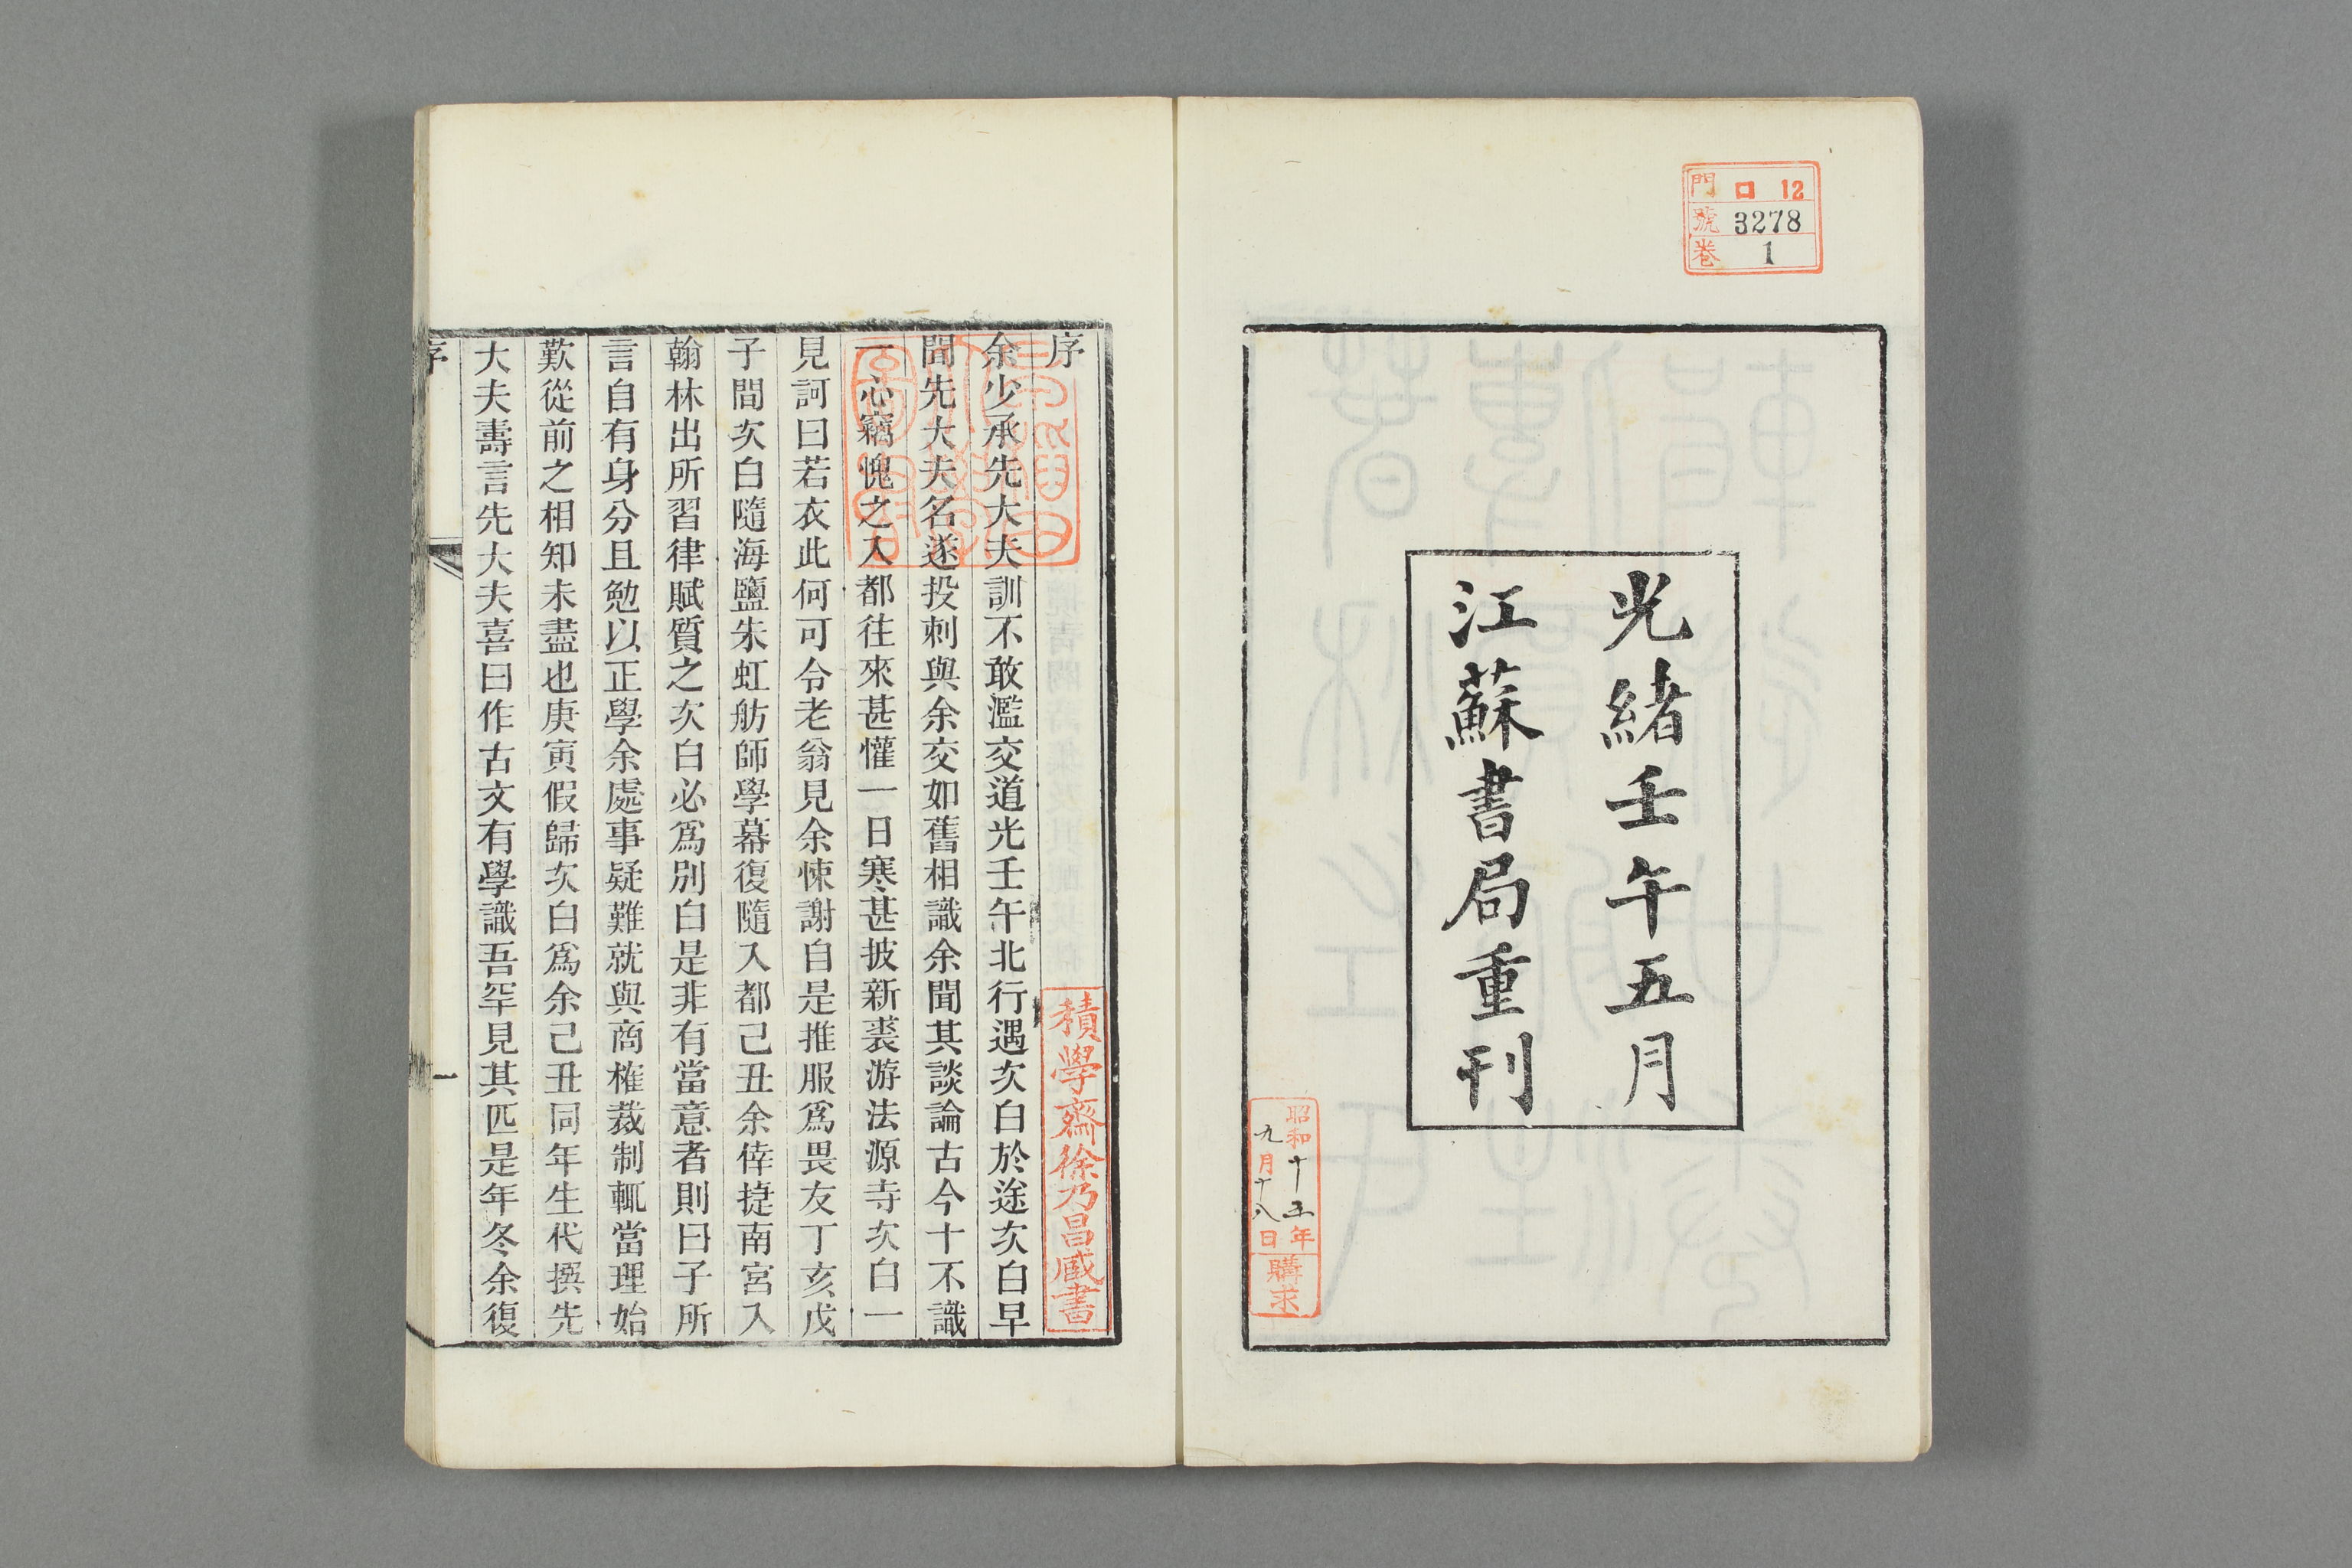 門 口 12
號 3278
卷 1
光緒壬午五月
江蘇書局重刊
昭和十五年
九月十八日
購求
序
積學齋徐乃昌臧書
余少承先大夫訓不敢濫交道光壬午北行遇次白於途次白早
聞先大夫名遂投刺與余交如舊相識余聞其談論古今十不識
一心竊愧之入都往來甚懽一日寒甚披新裘游法源寺次白一
見訶曰若衣此何可令老翁見余悚謝自是推服爲畏友丁亥戊
子間次白隨海鹽朱虹舫師學幕復隨入都己丑余倖捷南宮入
翰林出所習律賦質之次白必爲別白是非有當意者則曰子所
言自有身分且勉以正學余處事疑難就與商榷裁制輒當理始
歎從前之相知未盡也庚寅假歸次白爲余己丑同年生代撰先
大夫壽言先大夫喜曰作古文有學識吾罕見其匹是年冬余復
序
一